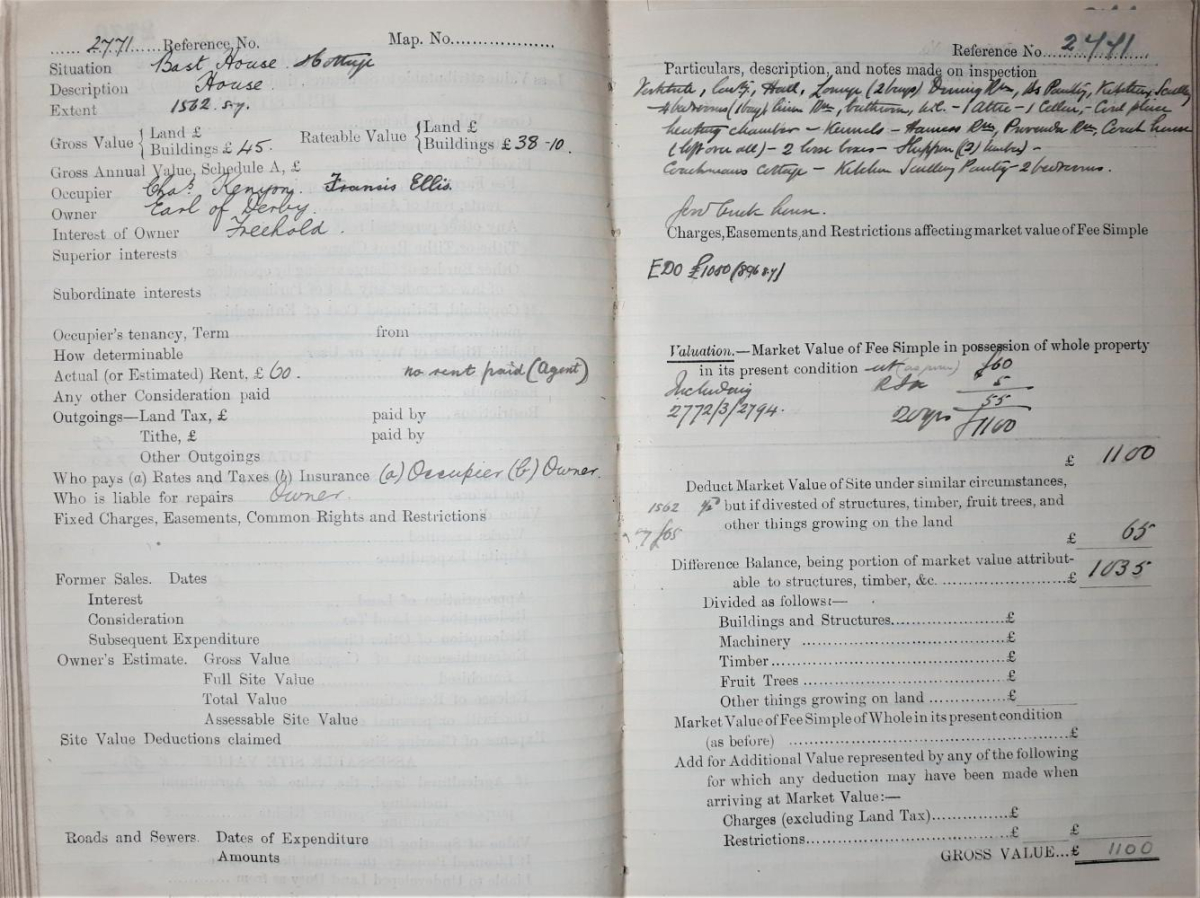 2771 Reference No. Map. No
Situation Bast House Hottage
Description House
Extent 1562 sy.
Gross Value { Land £
Buildings £ 45. Rateable Value { Land £
Buildings £ 38-10.
Gross Annual Value, Schedule A, £
Occupier Chas. Kenyon. Francis Ellis
Owner Earl of Derby.
Interest of Owner Freehold.
Superior interests
Subordinate interests
Occupier's tenancy, Term from
How determinable
Actual (or Estimated) Rent, £ 60. no rent paid (Agent)
Any other Consideration paid
Outgoings—Land Tax, £ paid by
Tithe, £ paid by
Other Outgoings
Who pays (a) Rates and Taxes (b) Insurance (a) Occupier (b) Owner.
Who is liable for repairs Owner
Fixed Charges, Easements, Common Rights and Restrictions
Former Sales. Dates
Interest
Consideration
Subsequent Expenditure
Owner's Estimate. Gross Value
Full Site Value
Total Value
Assessable Site Value
Site Value Deductions claimed
Roads and Sewers. Dates of Expenditure
Amounts
Reference No. 2771
Particulars, description, and notes made on inspection
Vestibule, Hall, Lounge (2 bays) Dining Rm, Pantry, Kitchen Scullery
4 bedrooms (1 bay) Linen Rm, bathroom, W.C. - 1 Attic - 1 Cellar, - Coal place
heating chamber - Kennels - Harness Rm, Provender Rm, Coach house
(loft over all) - 2 loose boxes - Shippon (2)
Coachmans Cottage - Kitchen Scullery Pantry - 2 bedrooms.
brick house.
Charges, Easements, and Restrictions affecting market value of Fee Simple
EDO £1050 (896 sy)
Valuation.—Market Value of Fee Simple in possession of whole property
in its present condition £60
Including 5
2772/3/2794. 55
20 yrs £1100
£ 1100
Deduct Market Value of Site under similar circumstances,
1562 but if divested of structures, timber, fruit trees, and
£65 other things growing on the land
£ 65
Difference Balance, being portion of market value attribut-
able to structures, timber, &c. £ 1035
Divided as follows:—
Buildings and Structures £
Machinery £
Timber £
Fruit Trees £
Other things growing on land £
Market Value of Fee Simple of Whole in its present condition
(as before) £
Add for Additional Value represented by any of the following
for which any deduction may have been made when
arriving at Market Value:—
Charges (excluding Land Tax) £
Restrictions £ £
GROSS VALUE...£ 1100